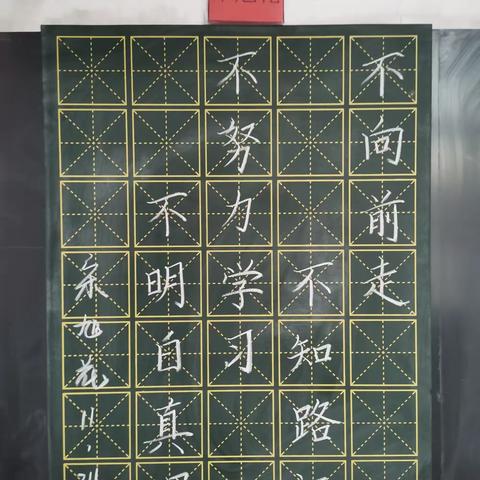 不向前走
不知路
不努力学习
不明自真
旭花
11.